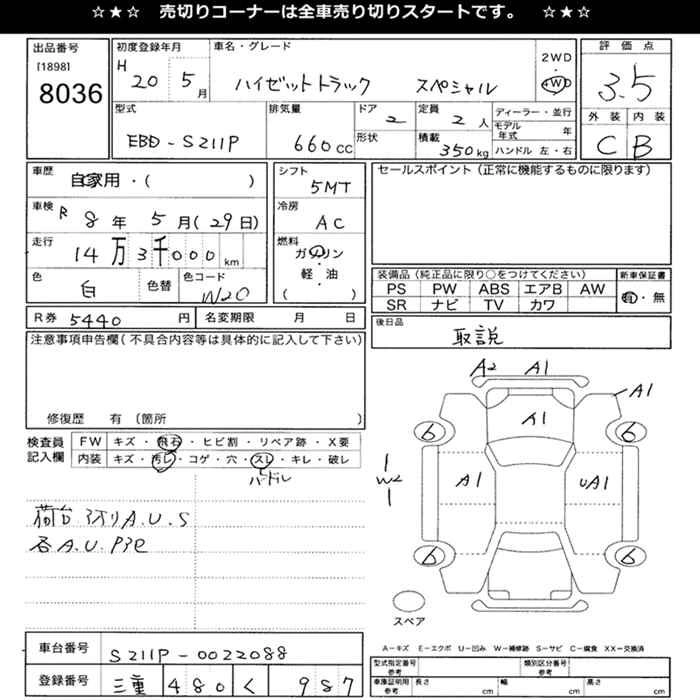 ☆★☆ 売切りコーナーは全車売り切りスタートです。 ☆★☆
出品番号
[1898]
8036
初度登録年月
H 20 5月
車名・グレード
ハイゼットトラック スペシャル
2WD
4WD
評価点
3.5
外装 内装
C B
型式
EBD-S211P
排気量
660cc
ドア
2
形状
定員
2人
積載
350kg
ディーラー・並行
モデル年式 年
ハンドル 左・右
車歴
自家用・( )
車検
R 8年 5月(29日)
走行
14万3千000km
色
白
色替
色コード
W20
シフト
5MT
冷房
AC
燃料
ガソリン
・
軽・油
( )
セールスポイント(正常に機能するものに限ります)
装備品(純正品に限り○をつけてください)
PS PW ABS エアB AW
SR ナビ TV カワ
新車保証書
有・無
R券 5440円
名変期限 月 日
後日品
取説
注意事項申告欄(不具合内容等は具体的に記入して下さい)
修復歴 有(箇所 )
検査員記入欄
FW キズ・飛石・ヒビ割・リペア跡・X要
内装 キズ・汚レ・コゲ・穴・スレ・キレ・破レ
荷台 A.U.S
各A.U.P3ヒ
A2 A1
A1
A1
6 6
W2
A1
UA1
6 6
スペア
A−キズ E−エクボ U−凹み W−補修跡 S−サビ C−腐食 XX−交換済
車台番号
S211P-0022088
登録番号
三重 480 く 987
型式指定番号 参考
類別区分番号 参考
車庫証明用 参考 長さ cm 幅 cm 高さ cm